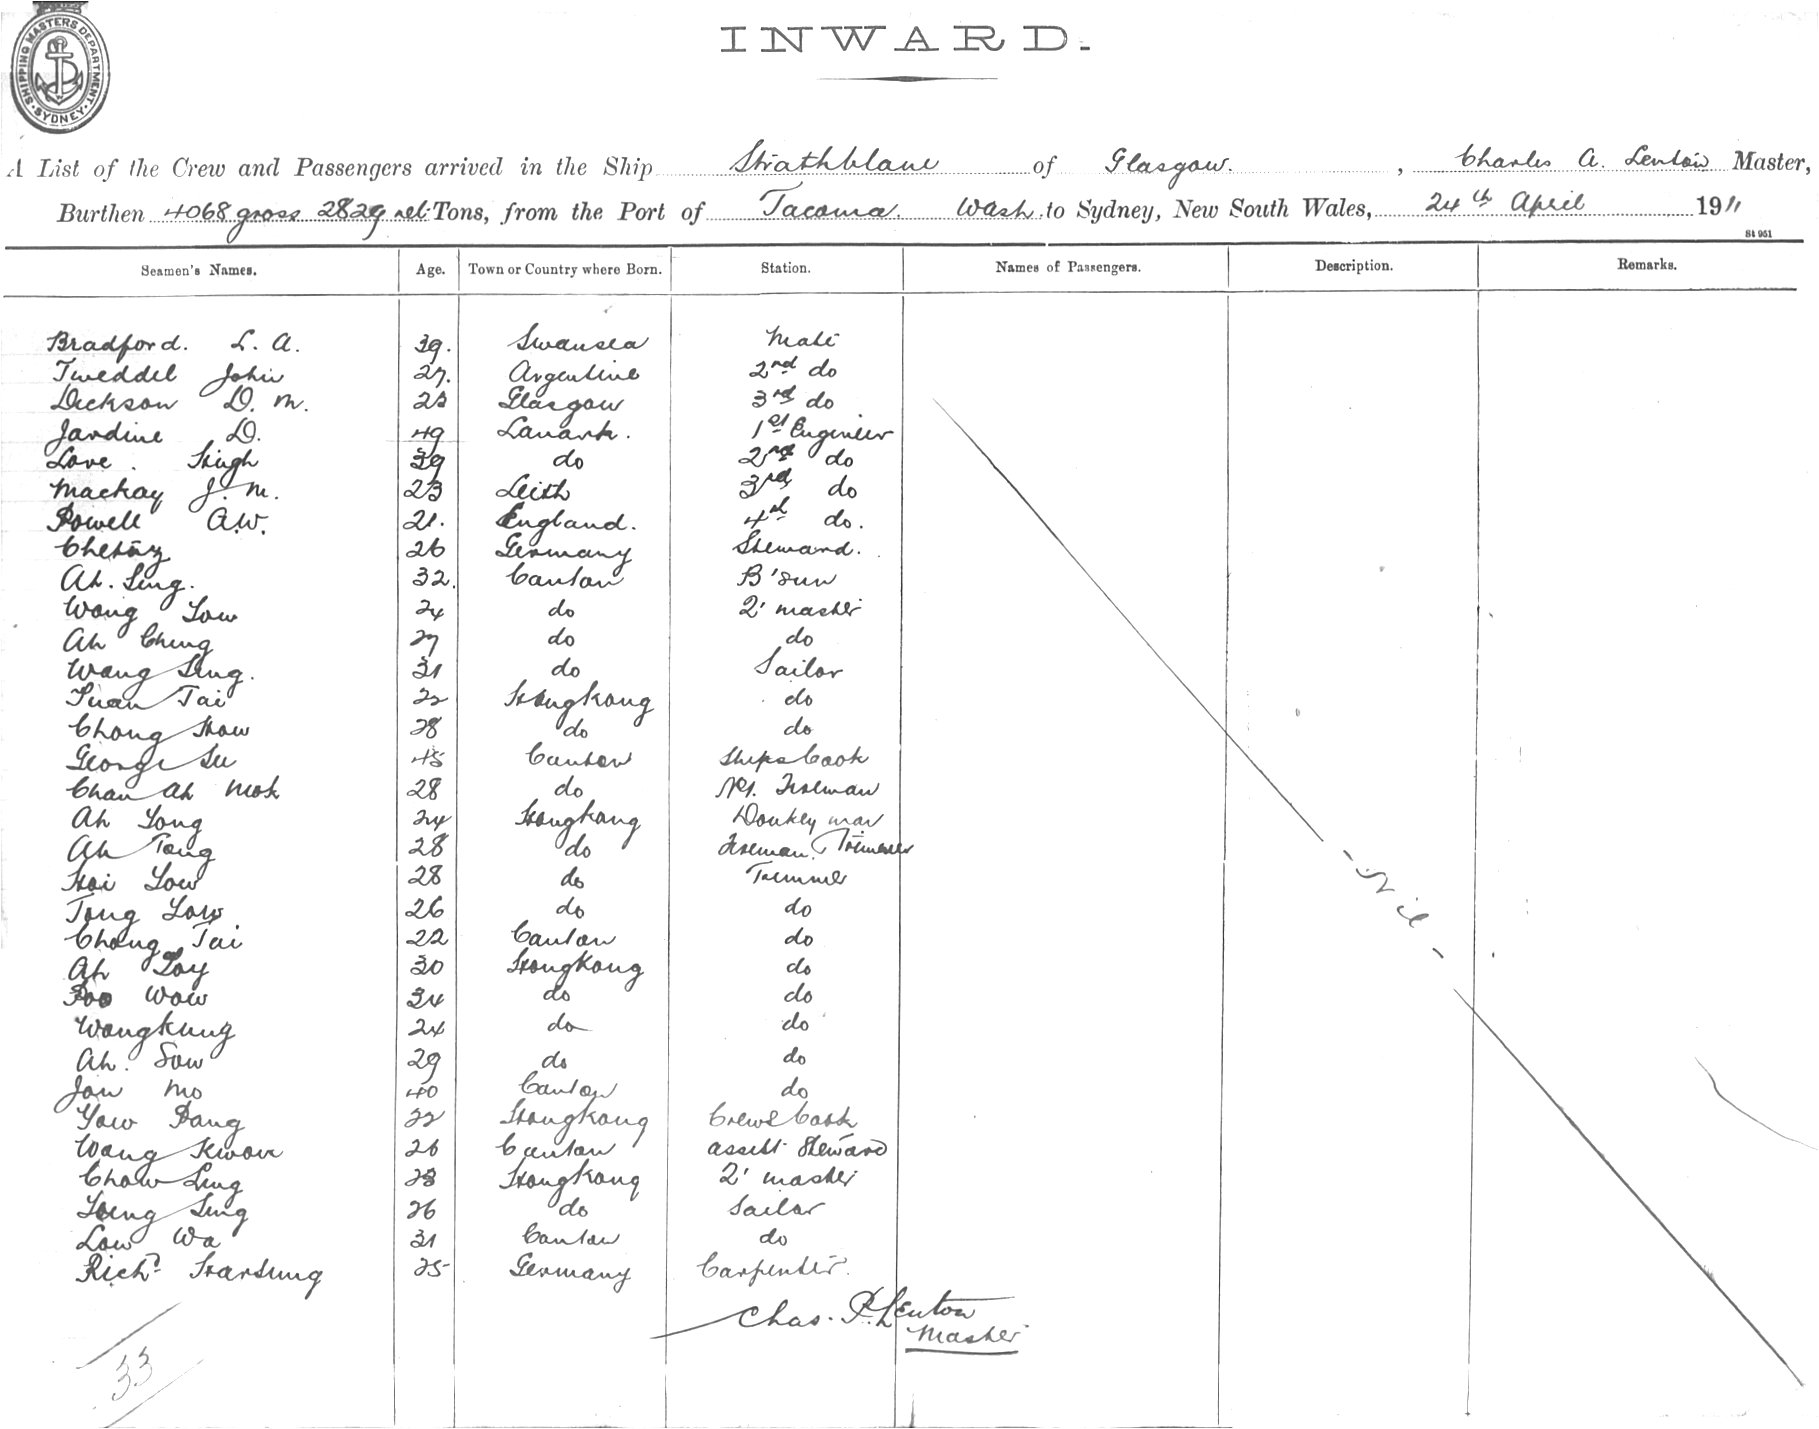 SHIPPING MASTERS DEPARTMENT SYDNEY
INWARD.
A List of the Crew and Passengers arrived in the Ship Strathblane of Glasgow. , Charles A. Lenton Master,
Burthen 4068 gross 2829 net Tons, from the Port of Tacoma. Wash. to Sydney, New South Wales, 24th April 1911
St 951
Seamen's Names. Age. Town or Country where Born. Station. Names of Passengers. Description. Remarks.
Bradford. L. A. 39. Swansea Mate
Tweddel John 27. Argentine 2nd do
Dickson D. M. Glasgow 3rd do
Jardine D. 49 Lanark. 1st Engineer
Love. Hugh 39 do 2nd do
Mackay J. M. 23 Leith 3rd do
Powell A.W. 21. England. 4th do.
26 Germany Steward.
Ah. Sing. 32. Canton B'sun
Wong Yow 24 do 2' master
Ah Ching 27 do do
Wang Sing. 31 do Sailor
Yuan Tai 22 Hongkong do
Chong How 28 do do
George Su 45 Canton Ships Cook
Chan Ah Mok 28 do No1. Fireman
Ah Yong 24 Hongkong Donkey man
Ah Tong 28 do Fireman, Trimmer
Hoi Yow 28 do Trimmer
Tong Yow 26 do do
Chong Tai 22 Canton do
Ah Loy 30 Hongkong do
Poo Wow 34 do do
Wongkung 24 do do
Ah. Sow 29 do do
Jow Mo 40 Canton do
Yow Pang 22 Hongkong Crews Cook
Wong Kwon 26 Canton assist Steward
Chow Ling 28 Hongkong 2' master
Sing 26 do Sailor
Low Wa 31 Canton do
Richd Hartung 25 Germany Carpenter.
- Nil -
Chas. A. Lenton
Master
33